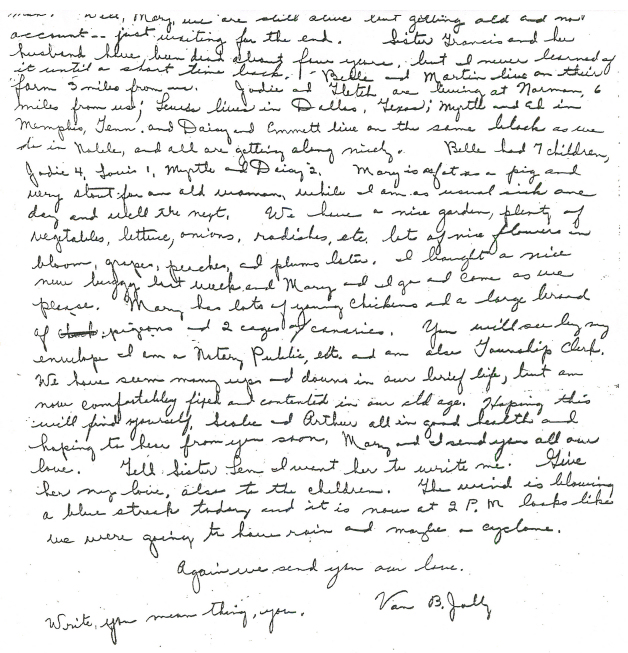 Well, Mary, we are still alive but getting old and no
account -- just waiting for the end. Sister Francis and her
husband have been dead about four years, but I never learned of
it until a short time back. Belle and Martin live on their
farm 3 miles from us. Jodie and Fletch are living at Norman, 6
miles from us; Louis lives in Dallas, Texas; Myrtle and Ed in
Memphis, Tenn. and Daisy and Emmett live on the same block as we
do in Noble, and all are getting along nicely. Belle had 7 children,
Jodie 4, Louis 1, Myrtle and Daisy 2. Mary is as fat as a pig and
very stout for an old woman, while I am as usual sick one
day and well the next. We have a nice garden, plenty of
vegetables, lettuce, onions, radishes, etc. lots of nice flowers in
bloom, grapes, peaches, and plums later. I bought a nice
new buggy last week and Mary and I go and come as we
please. Mary has lots of young chickens and a large brood
of pigeons and 2 cages of canaries. You will see by my
envelope I am a Notery Public, etc. and am also Township Clerk.
We have seen many ups and downs in our brief life, but am
now comfortably fixed and contented in our old age. Hoping this
will find yourself, and Arthur all in good health and
hoping to hear from you soon, Mary and I send you all our
love. Tell Sister Lem I want her to write me. Give
her my love, also to the children. The wind is blowing
a blue streak today and it is now at 2 P.M. looks like
we were going to have rain and maybe a cyclone.
Again we send you our love.
Van B. Jolly
Write, you mean thing, you.